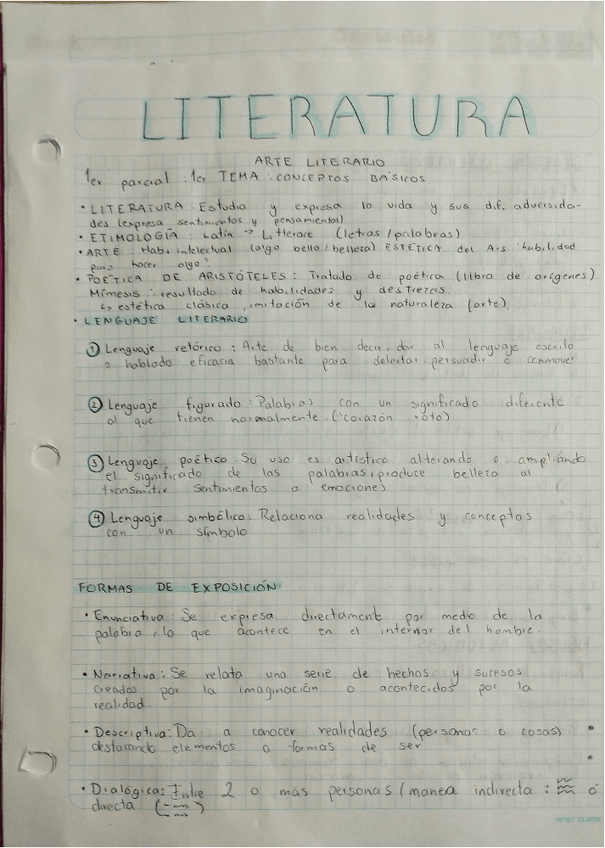 LITERATURA
ARTE LITERARIO
1er parcial : 1er TEMA : CONCEPTOS BÁSICOS
• LITERATURA : Estudio y expresa la vida y sus dif. adversida-
des (expresa sentimientos y pensamientos)
• ETIMOLOGÍA : Latín → Litterace (letras / palabras)
• ARTE : Hab. intelectual (algo bello/belleza) ESTÉTICA del Ars "habilidad
para hacer algo"
• POÉTICA DE ARISTÓTELES : Tratado de poética (libro de orígenes)
Mímesis : resultado de habilidades y destrezas.
↳ estética clásica, imitación de la naturaleza (arte)
• LENGUAJE LITERARIO
① Lenguaje retórico : Arte de bien decir, dar al lenguaje escrito
o hablado eficacia bastante para deleitar, persuadir o conmover
② Lenguaje figurado : Palabras con un significado diferente
al que tienen normalmente ("corazón roto")
③ Lenguaje poético : Su uso es artístico alterando o ampliando
el significado de las palabras, produce belleza al
transmitir sentimientos o emociones
④ Lenguaje simbólico : Relaciona realidades y conceptos
con un símbolo
FORMAS DE EXPOSICIÓN
• Enunciativa : Se expresa directamente por medio de la
palabra, lo que acontece en el interior del hombre.
• Narrativa : Se relata una serie de hechos y sucesos
creados por la imaginación o acontecidos por la
realidad
• Descriptiva : Da a conocer realidades (personas o cosas)
destacando elementos o formas de ser
• Dialógica : Entre 2 o más personas (manera indirecta : ó
directa